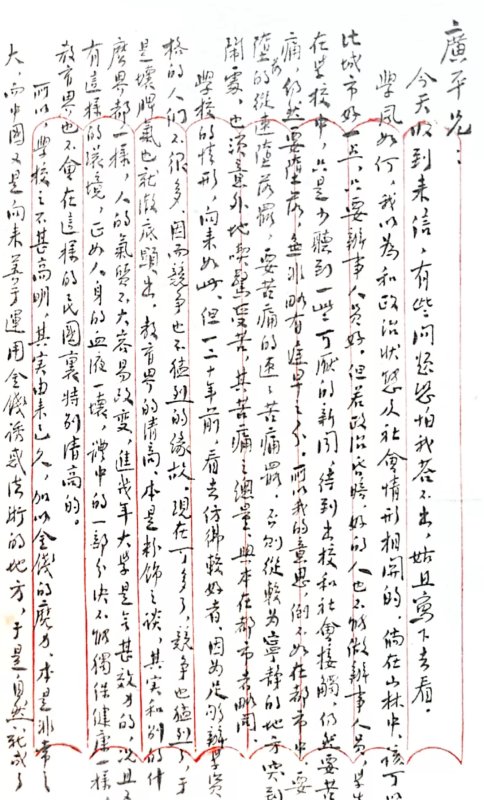 廣平兄：
今天收到来信，有些问题恐怕我答不出，姑且寫下去看。
學風如何，我以为和政治狀態及社會情形相関的，倘在山林中，該可以
比城市好一点，只要辦事人員好。但若政治昏暗，好的人也不能做辦事人員，學生
在学校中，只是少聽到一些可厭的新聞，待到出校和社會接觸，仍然要苦
痛，仍然要墮落，無非略有遲早之分。所以我的意思，倒不如在都市中，要
墮落的從速墮落罷，要苦痛的速速苦痛罷，否則從較为寧静的地方突到
鬧處，也須意外地喫驚受苦，其苦痛之總量，與本在都市者略同。
學校的情形，向来如此，但一二十年前，看去仿彿較好者，因为足夠辦學資
格的人們不很多，因而競争也不猛烈的缘故。現在可多了，競争也猛烈了，于
是壞脾氣也就徹底顕出。教育界的清高，本是粉飾之談，其实和别的什
麽界都一樣，人的氣質不大容易改变，進幾年大學是無甚效力的，况且又
有這樣的環境，正如人身的血液一壞，體中的一部分决不能獨保健康一樣，
教育界也不會在這樣的民國裏特别清高的。
所以，學校之不甚高明，其实由来已久，加以金錢的魔力，本是非常之
大，而中國又是向来善于運用金錢誘惑法術的地方，于是自然就成了